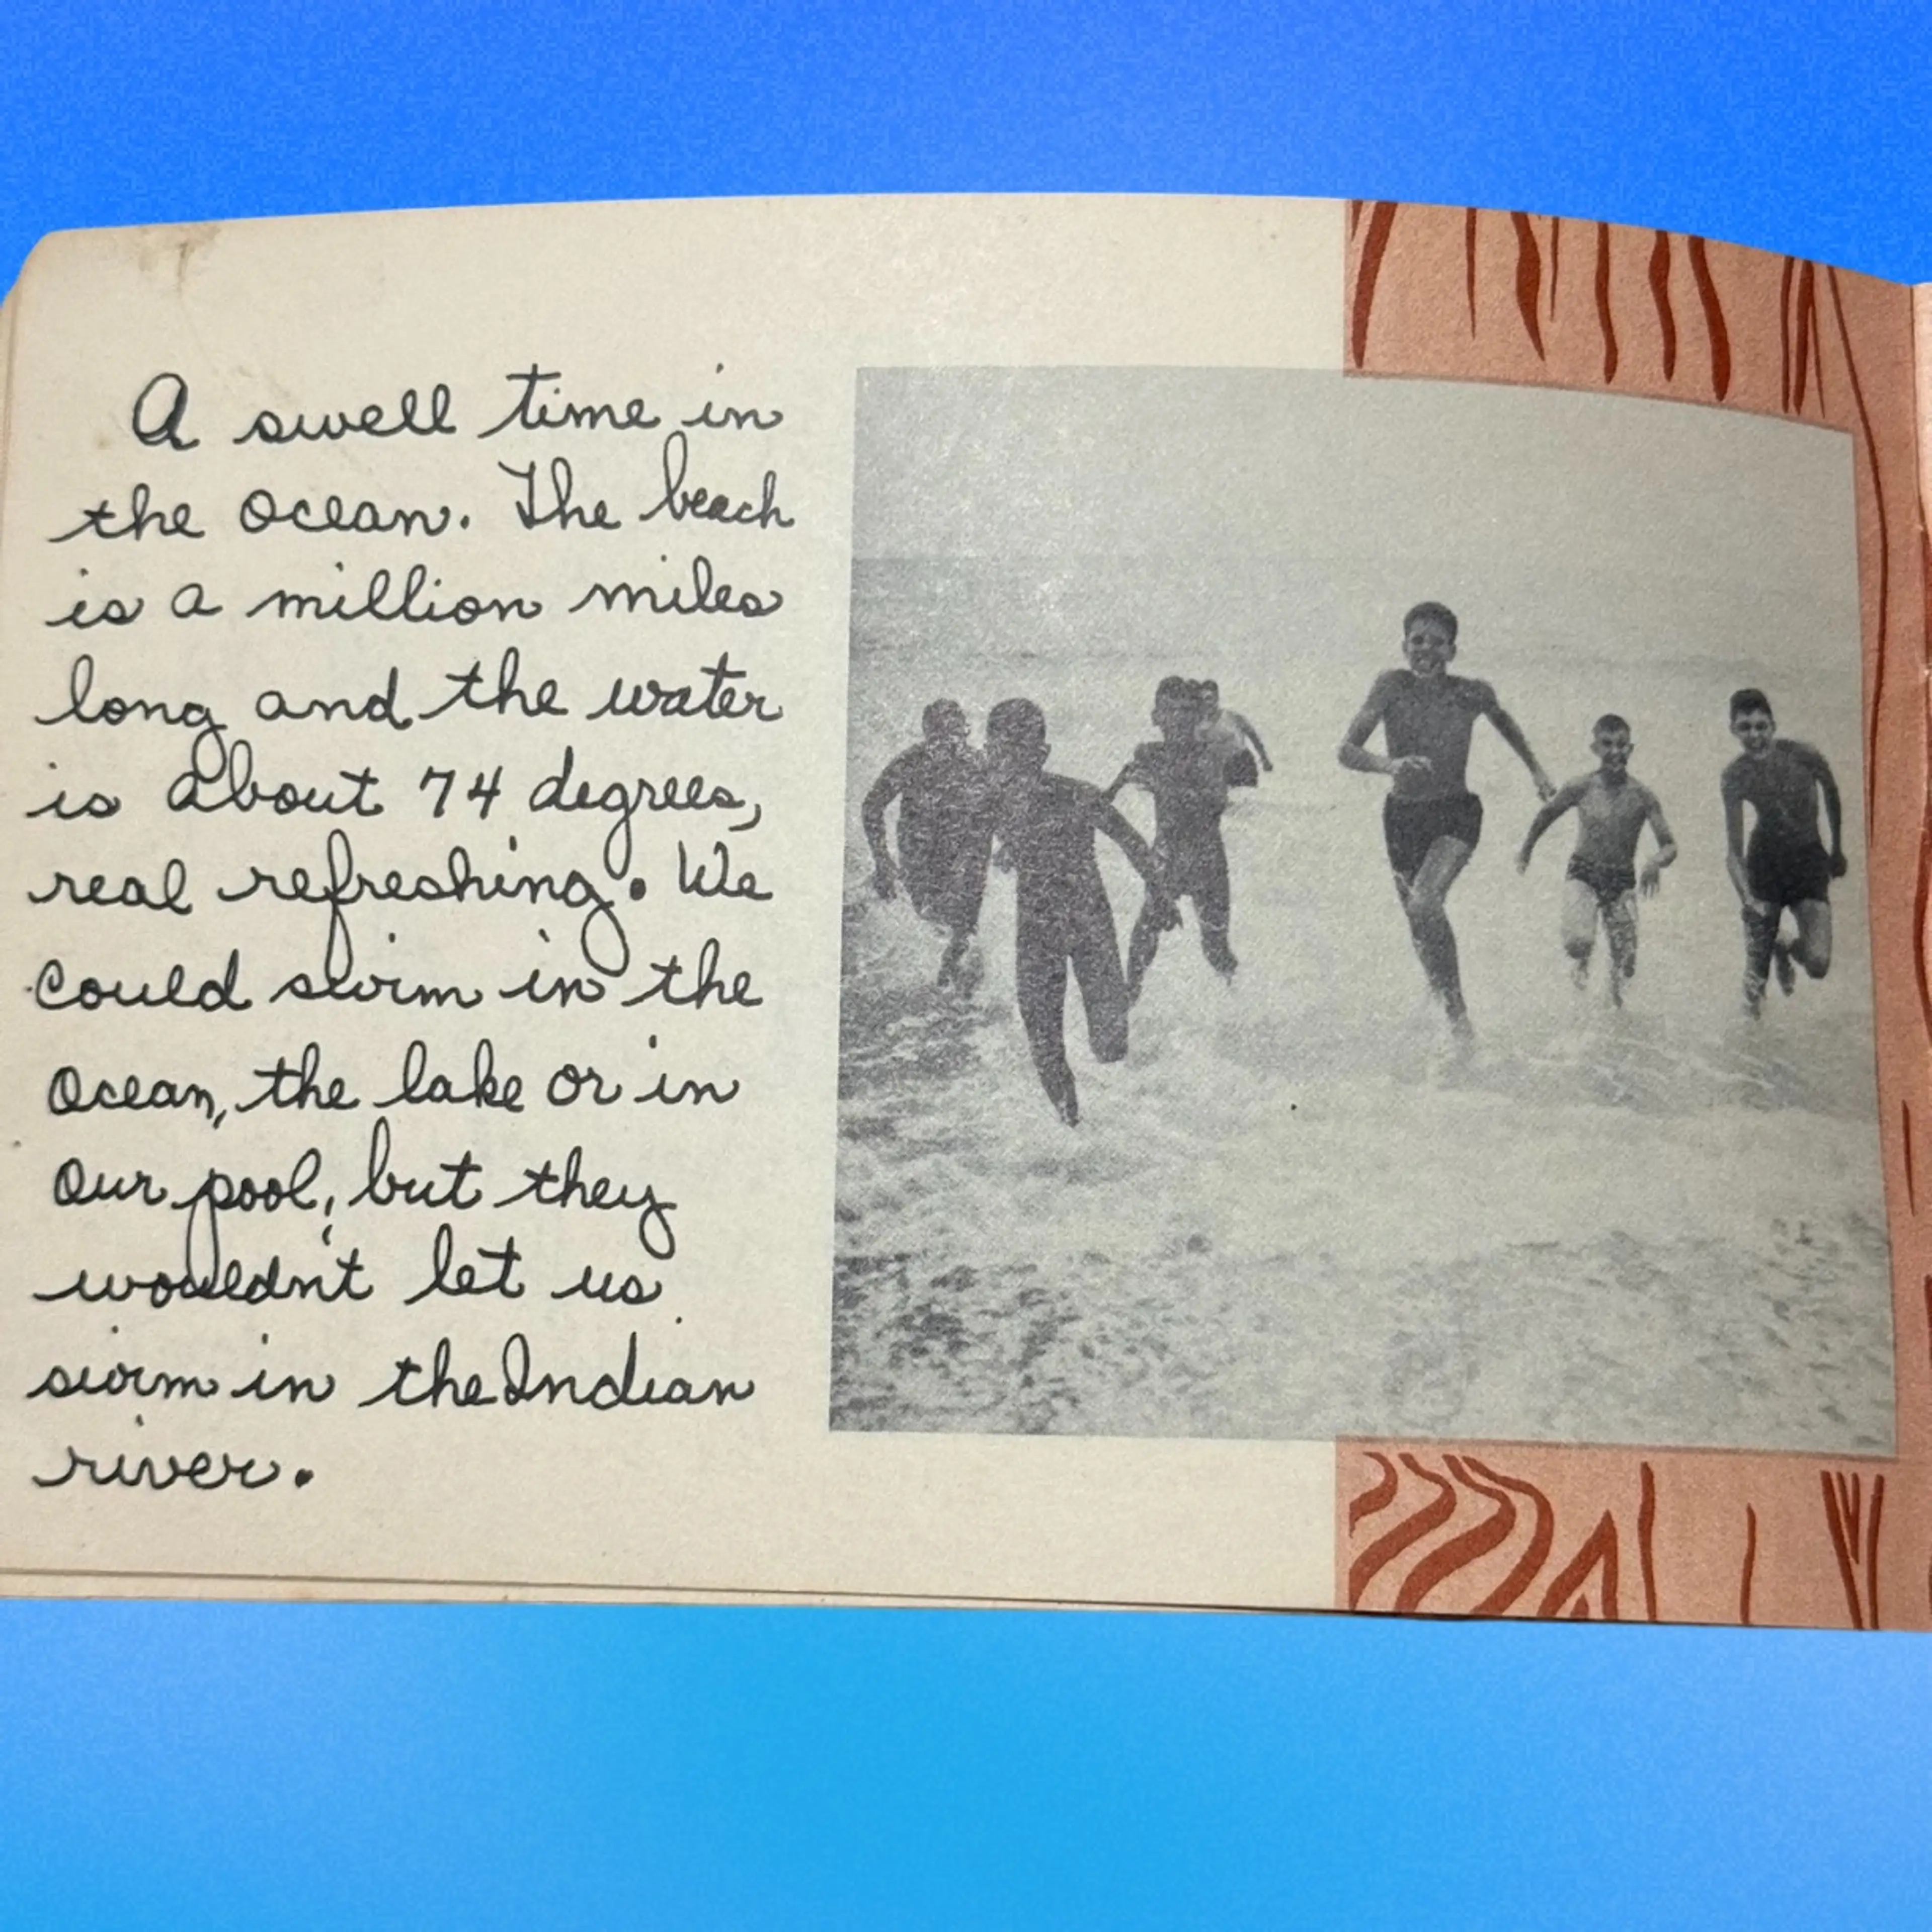 A swell time in
the ocean. The beach
is a million miles
long and the water
is about 74 degrees,
real refreshing. We
could swim in the
ocean, the lake or in
our pool, but they
wouldn't let us
swim in the Indian
river.